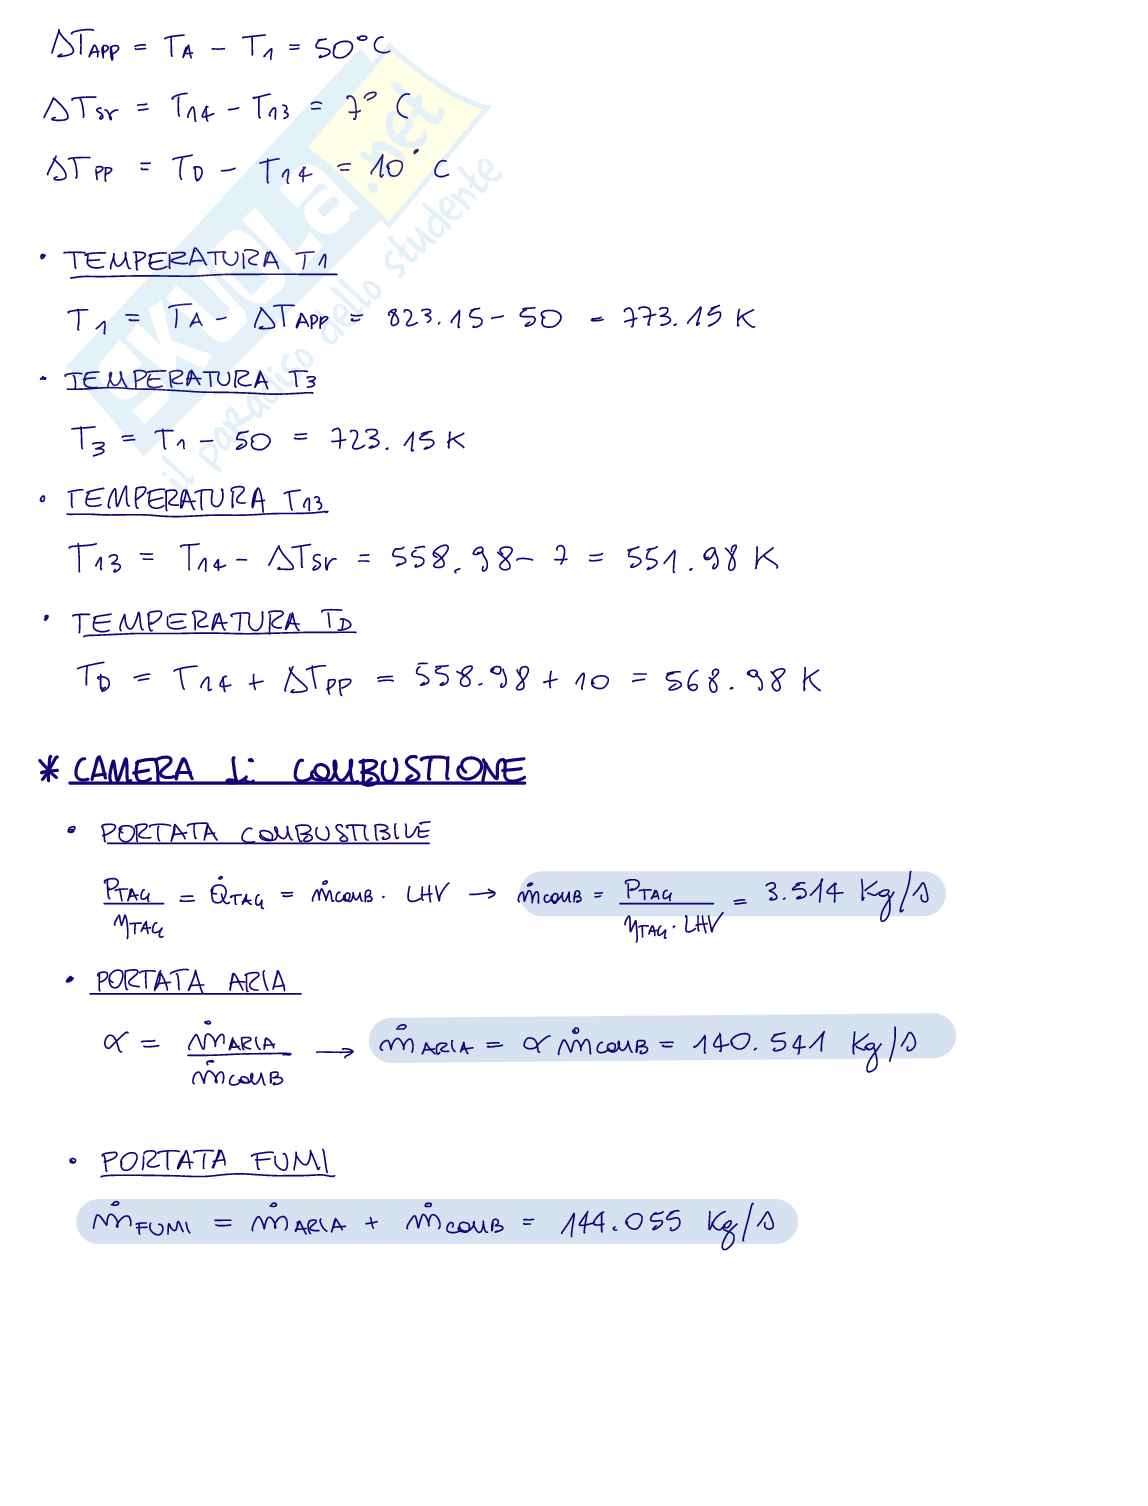 ΔT_APP = T_A - T_1 = 50°C
ΔT_sr = T_14 - T_13 = 7° C
ΔT_PP = T_D - T_14 = 10° C
• TEMPERATURA T1
T_1 = T_A - ΔT_APP = 823.15 - 50 = 773.15 K
• TEMPERATURA T3
T_3 = T_1 - 50 = 723.15 K
• TEMPERATURA T_13
T_13 = T_14 - ΔT_sr = 558.98 - 7 = 551.98 K
• TEMPERATURA T_D
T_D = T_14 + ΔT_PP = 558.98 + 10 = 568.98 K
* CAMERA di COMBUSTIONE
• PORTATA COMBUSTIBILE
P_TAG / η_TAG = Q̇_TAG = ṁ_COMB · LHV → ṁ_COMB = P_TAG / η_TAG · LHV = 3.514 Kg/s
• PORTATA ARIA
α = ṁ_ARIA / ṁ_COMB → ṁ_ARIA = α ṁ_COMB = 140.541 Kg/s
• PORTATA FUMI
ṁ_FUMI = ṁ_ARIA + ṁ_COMB = 144.055 Kg/s
SKUOLA.net
il paradiso dello studente